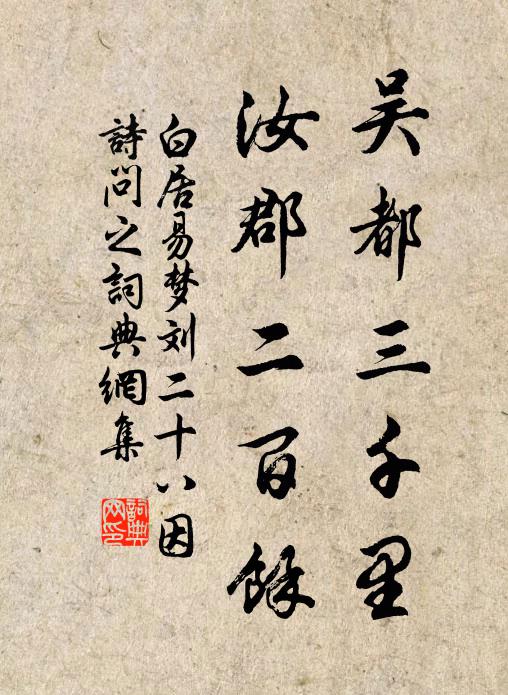 吴都三千里
汝郡二百餘
白居易梦刘二十八因
詩问之詞典網集
詞典网印